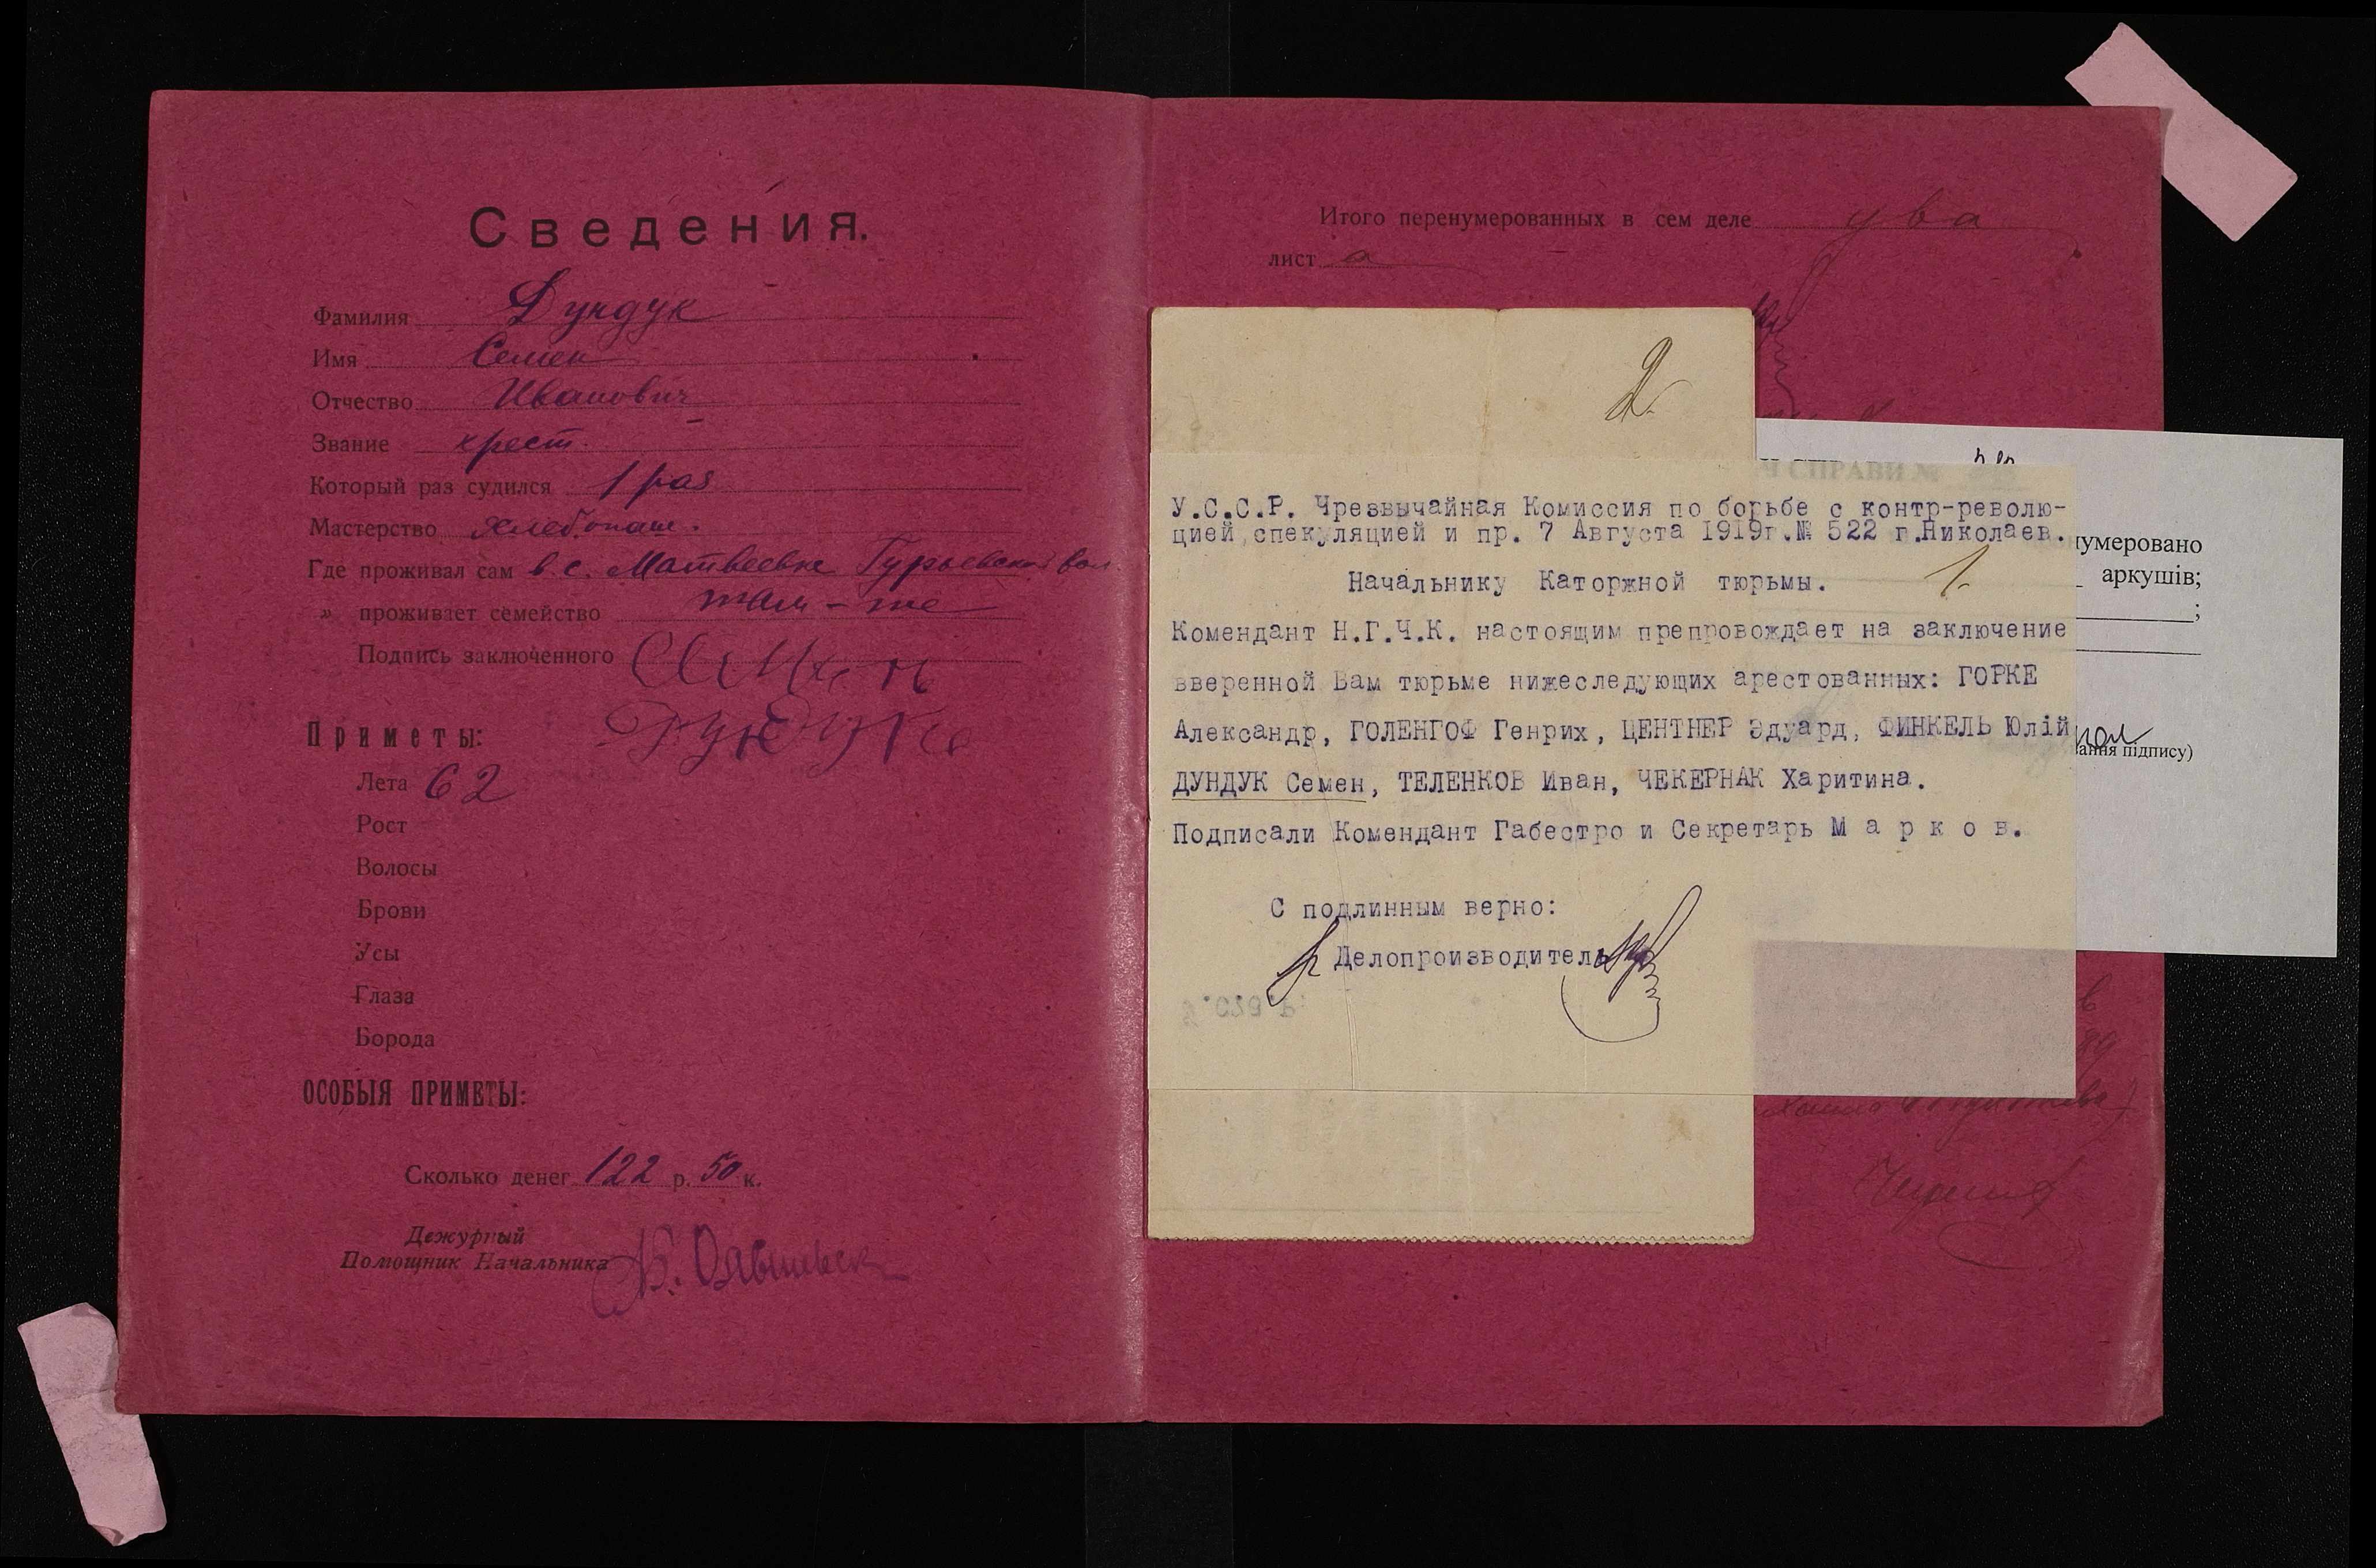 Сведения.
Фамилия Дундук
Имя Семен
Отчество Иванович
Звание крест.
Который раз судился 1 раз
Мастерство хлебопаш.
Где проживал сам в с. Матвеевке Гурьевской вол.
» проживает семейство там-же
Подпись заключенного Семен
Дундук
Приметы:
Лета 62
Рост
Волосы
Брови
Усы
Глаза
Борода
ОСОБЫЯ ПРИМЕТЫ:
Сколько денег 122 р. 50 к.
Дежурный
Помощник Начальника
Итого перенумерованных в сем деле два
лист а
2
У.С.С.Р. Чрезвычайная Комиссия по борьбе с контр-револю-
цией спекуляцией и пр. 7 Августа 1919г.№ 522 г.Николаев.
1.
Начальнику Каторжной тюрьмы.
Комендант Н.Г.Ч.К. настоящим препровождает на заключение
вверенной Вам тюрьме нижеследующих арестованных: ГОРКЕ
Александр, ГОЛЕНГОФ Генрих, ЦЕНТНЕР Эдуард, ФИНКЕЛЬ Юлій
ДУНДУК Семен, ТЕЛЕНКОВ Иван, ЧЕКЕРНАК Харитина.
Подписали Комендант Габестро и Секретарь М а р к о в.
С подлинным верно:
Делопроизводитель
СПРАВИ №
умеровано
аркушів;
;
ання підпису)